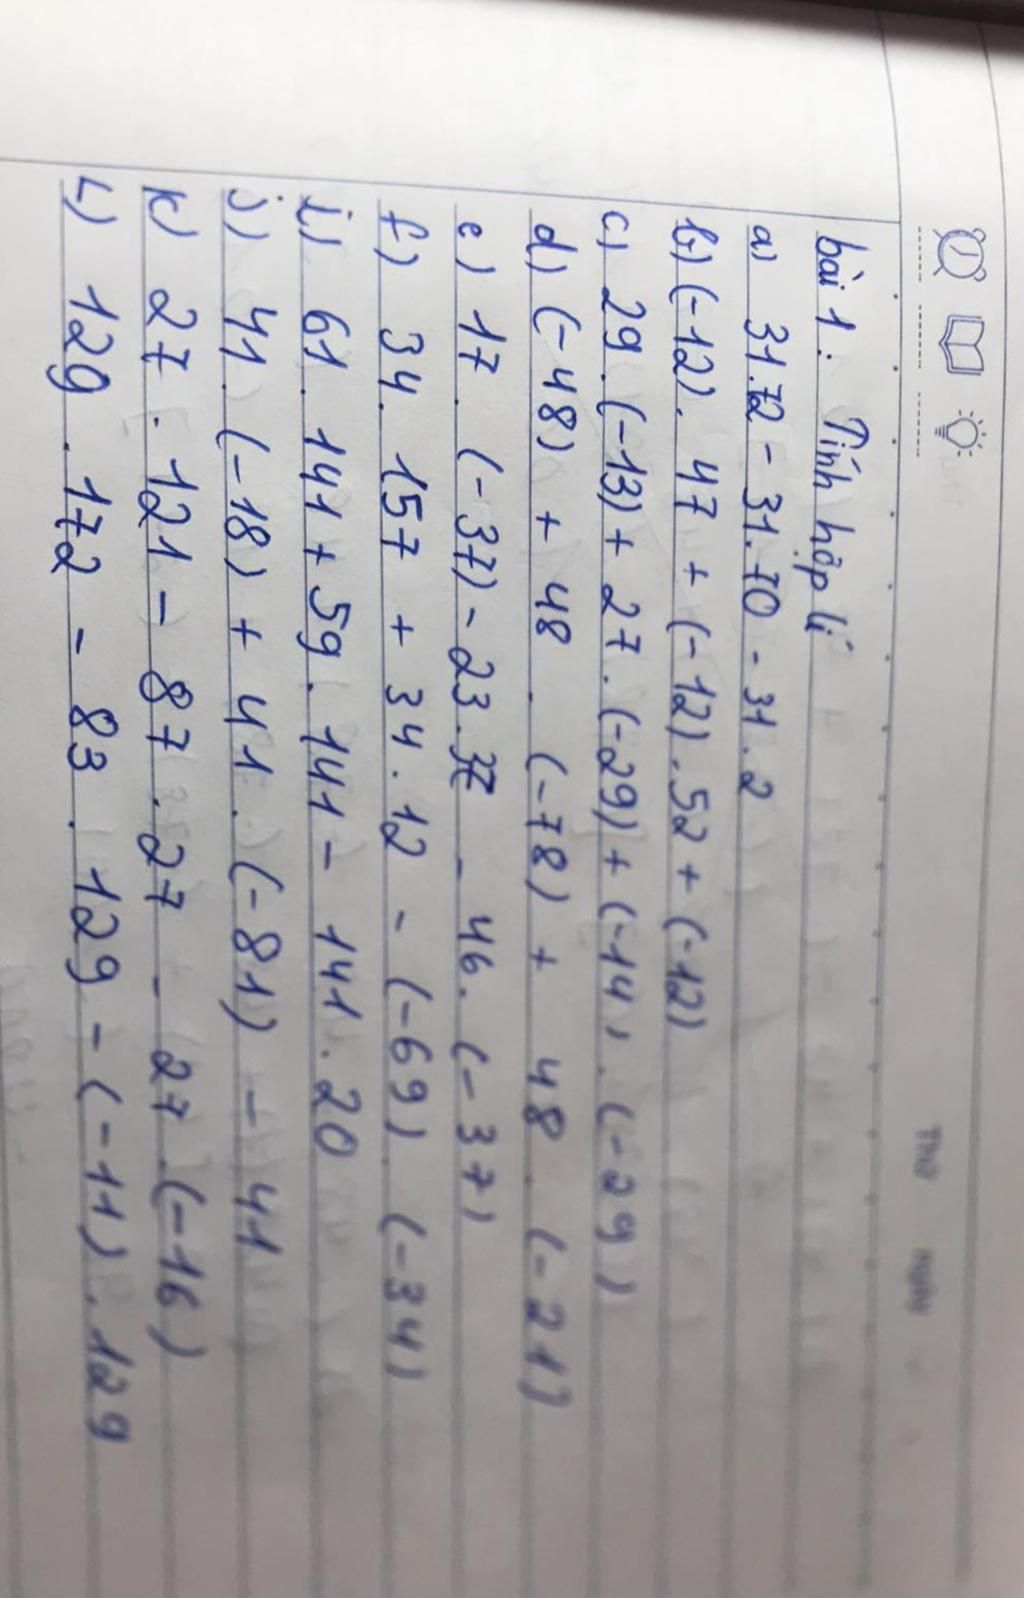 Thứ Ngày
bài 1: Tính hợp lí
a) 31.72 - 31.70 - 31.2
b) (-12). 47 + (-12).52 + (-12)
c) 29.(-13) + 27.(-29) + (-14).(-29)
d) (-48) + 48.(-78) + 48.(-21)
e) 17.(-37) - 23.37 - 46.(-37)
f) 34.157 + 34.12 - (-69).(-34)
i) 61.141 + 59.141 - 141.20
j) 41.(-18) + 41.(-81) - 41
k) 27.121 - 87.27 - 27.(-16)
L) 129.172 - 83.129 - (-11).129